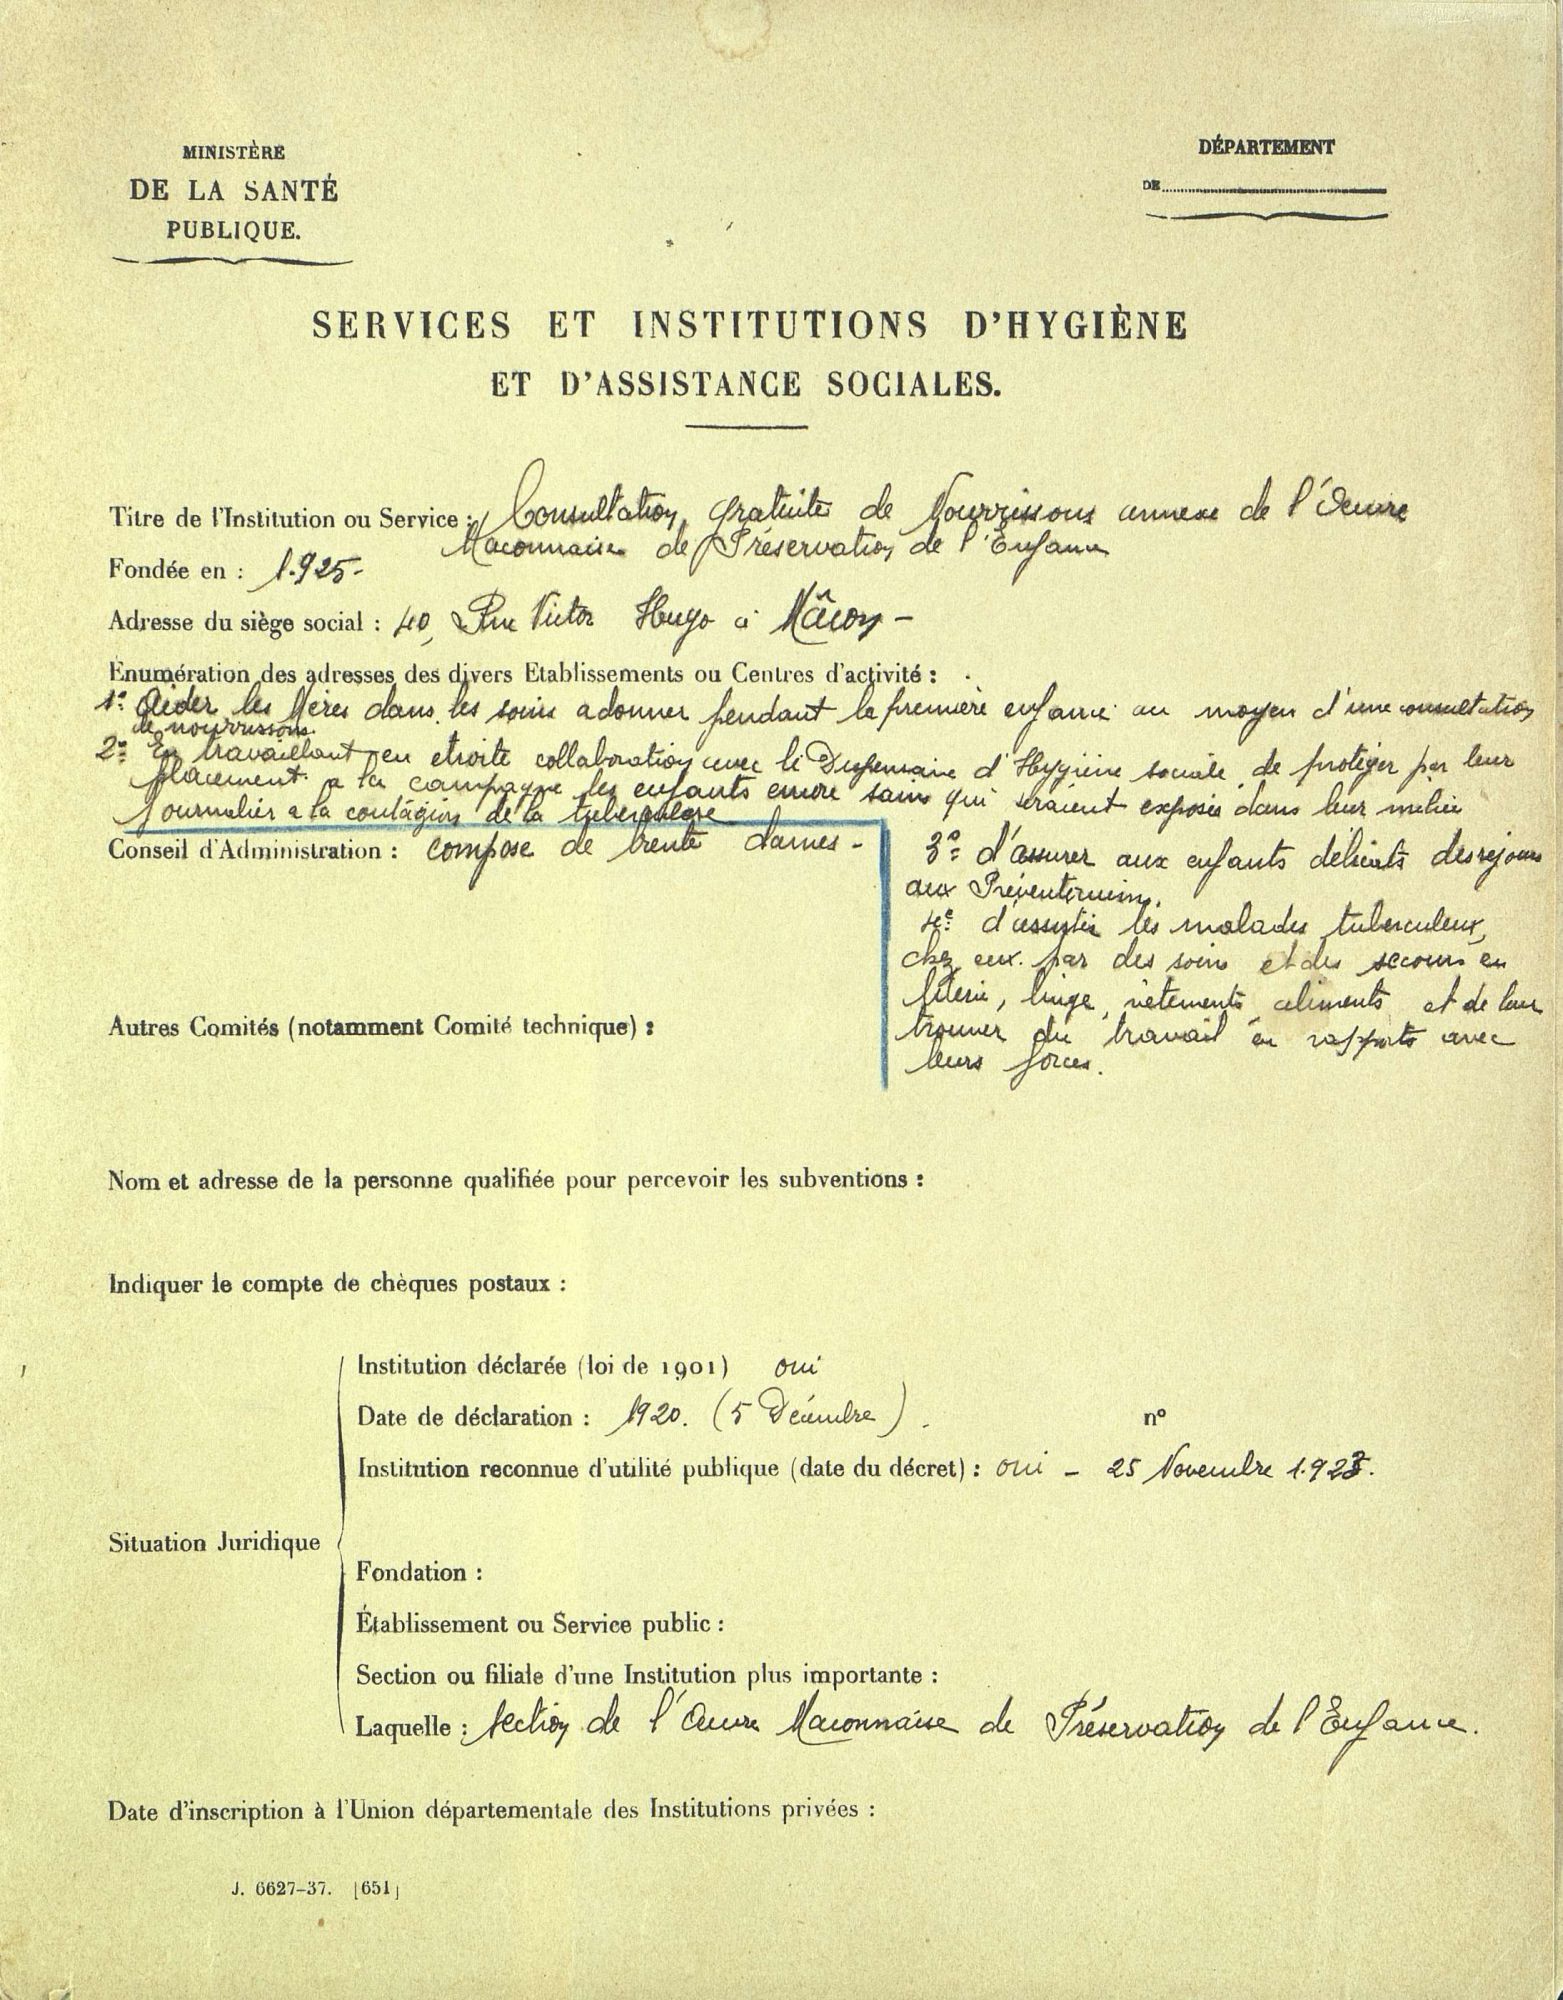 MINISTÈRE
DE LA SANTÉ
PUBLIQUE.
DÉPARTEMENT
DE
SERVICES ET INSTITUTIONS D'HYGIÈNE
ET D'ASSISTANCE SOCIALES.
Titre de l'Institution ou Service : Consultation gratuite de Nourrissons annexe de l'Oeuvre
Maconnaise de Préservation de l'Enfance
Fondée en : 1.925-
Adresse du siège social : 40, Rue Victor Hugo à Mâcon -
Enumération des adresses des divers Etablissements ou Centres d'activité :
1º Aider les Mères dans les soins a donner pendant la première enfance au moyen d'une consultation
de nourrissons.
2º En travaillant en etroite collaboration avec le Dispensaire d'Hygiène sociale, de protéger par leur
placement a la campagne les enfants encore sains qui seraient exposés dans leur milieu
journalier a la contagion de la tuberculose
Conseil d'Administration : compose de trente dames -
3º d'assurer aux enfants délicats des sejours
aux Préventoriums.
4º d'assister les malades tuberculeux,
chez eux par des soins et des secours en
literie, linge, vêtements, aliments et de leur
trouver du travail en rapports avec
leurs forces.
Autres Comités (notamment Comité technique) :
Nom et adresse de la personne qualifiée pour percevoir les subventions :
Indiquer le compte de chèques postaux :
Institution déclarée (loi de 1901) oui
Date de déclaration : 1920. (5 Décembre). nº
Institution reconnue d'utilité publique (date du décret) : oui - 25 Novembre
Situation Juridique
Fondation :
Établissement ou Service public :
Section ou filiale d'une Institution plus importante :
Laquelle : Section de l'Œuvre Maconnaise de Préservation de l'Enfance.
Date d'inscription à l'Union départementale des Institutions privées :
J. 6627-37. [651]